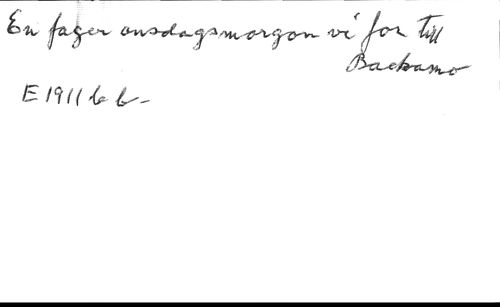 En fager onsdagsmorgon vi for till
Backamo
E 1911 b b-